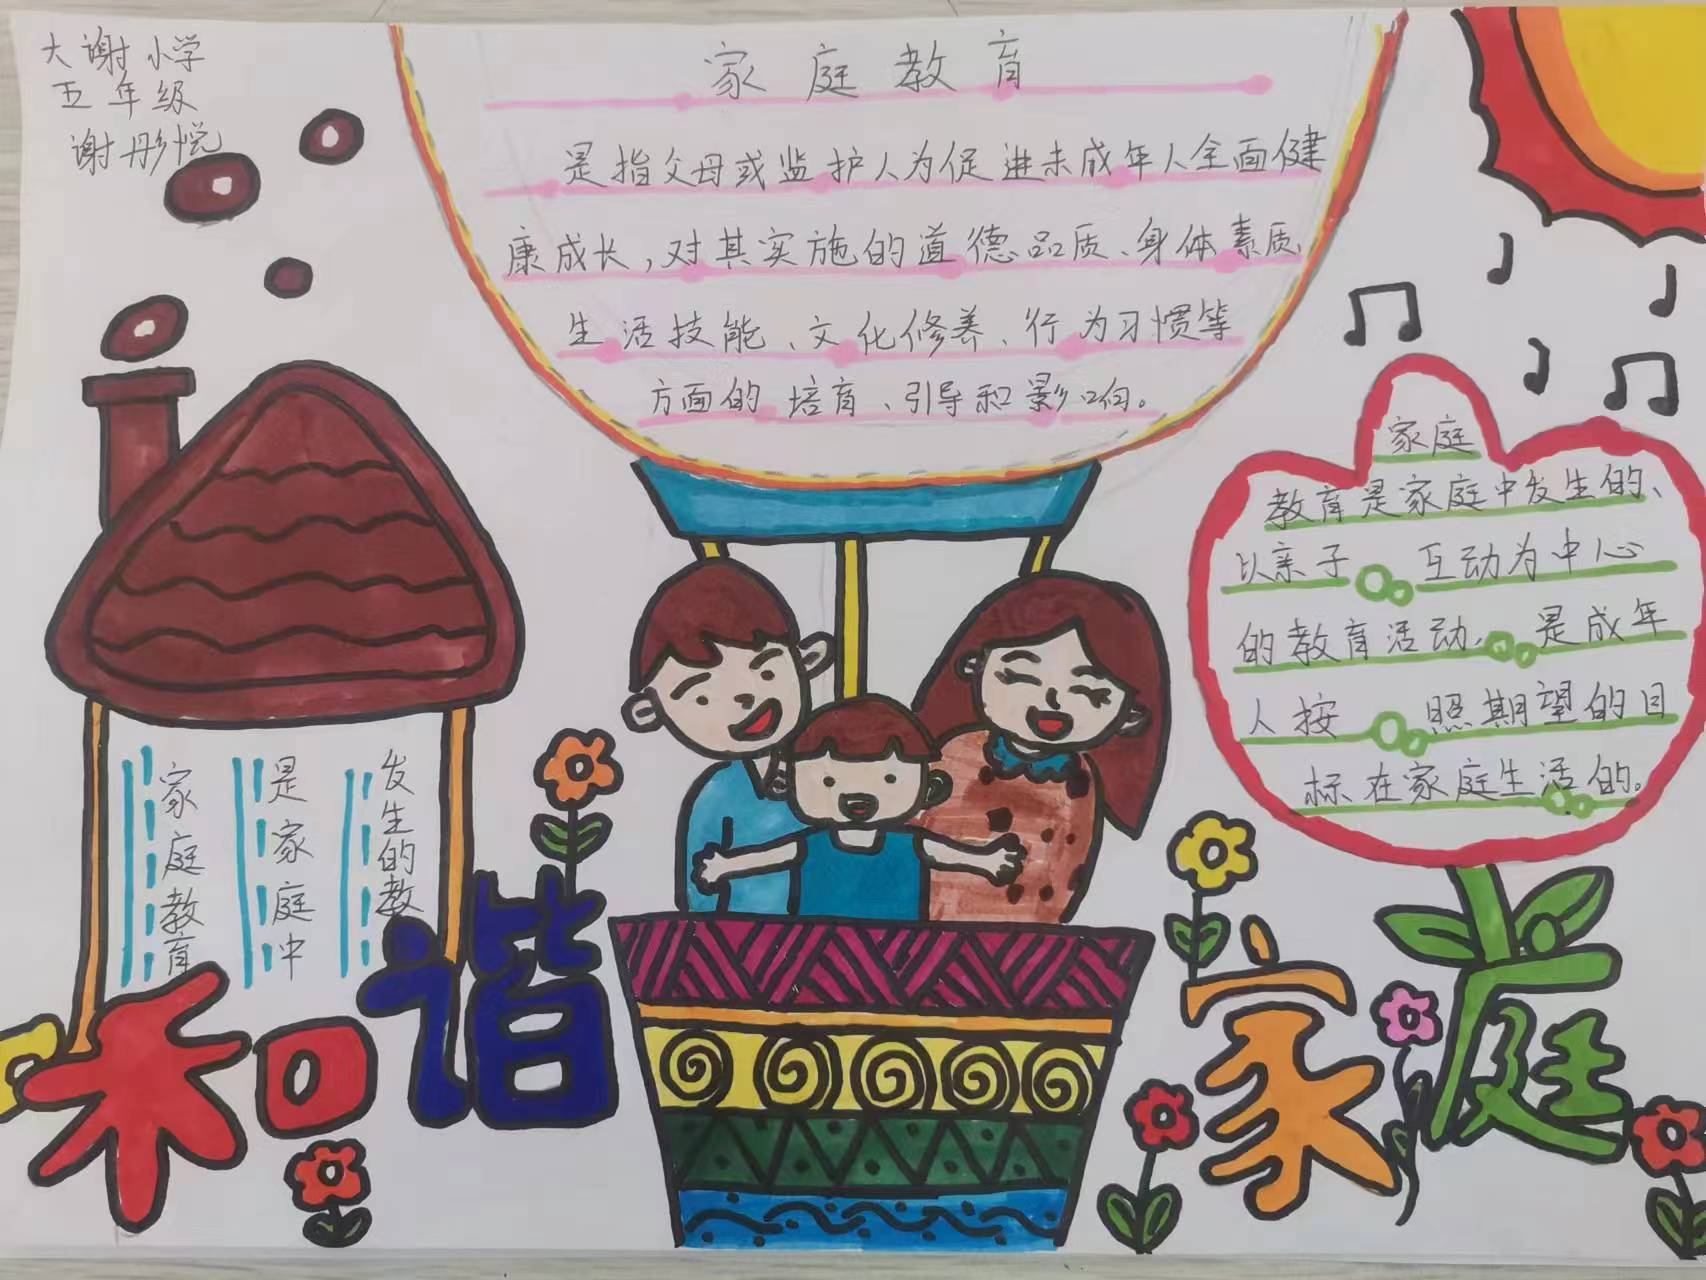 大谢小学
五年级
谢彤悦
家庭教育
是指父母或监护人为促进未成年人全面健
康成长，对其实施的道德品质、身体素质、
生活技能、文化修养、行为习惯等
方面的培育、引导和影响。
家庭
教育是家庭中发生的、
以亲子互动为中心
的教育活动，是成年
人按照期望的目
标在家庭生活的。
家庭教育
是家庭中
发生的教
和谐
家庭